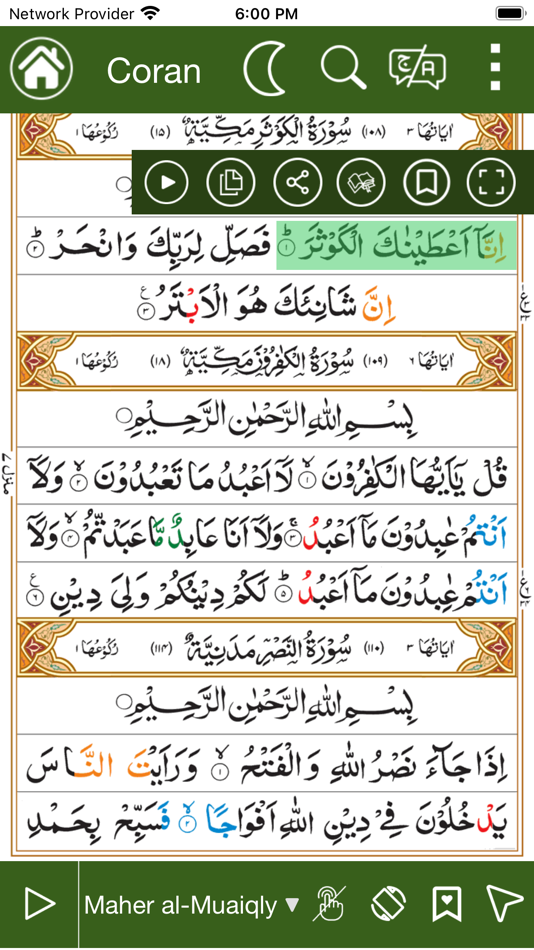 Network Provider 6:00 PM
Coran
اٰیَاتُهَا ٣ (١٠٨) سُوْرَةُ الْكَوْثَرِ مَكِّيَّةٌ (١٥) رُكُوْعُهَا ١
اِنَّاۤ اَعْطَيْنٰكَ الْكَوْثَرَ ؕ ١ فَصَلِّ لِرَبِّكَ وَانْحَرْ ؕ ٢
اِنَّ شَانِئَكَ هُوَ الْاَبْتَرُ ٣ ع
اٰیَاتُهَا ٦ (١٠٩) سُوْرَةُ الْكٰفِرُوْنَ مَكِّيَّةٌ (١٨) رُكُوْعُهَا ١
بِسْمِ اللهِ الرَّحْمٰنِ الرَّحِيْمِ
قُلْ يٰۤاَيُّهَا الْكٰفِرُوْنَ ۙ ١ لَاۤ اَعْبُدُ مَا تَعْبُدُوْنَ ۙ ٢ وَلَاۤ
اَنْتُمْ عٰبِدُوْنَ مَاۤ اَعْبُدُ ۚ ٣ وَلَاۤ اَنَا عَابِدٌ مَّا عَبَدْتُّمْ ۙ ٤ وَلَاۤ
اَنْتُمْ عٰبِدُوْنَ مَاۤ اَعْبُدُ ؕ ٥ لَكُمْ دِيْنُكُمْ وَلِيَ دِيْنِ ٦ ع
منزل ٧
اٰیَاتُهَا ٣ (١١٠) سُوْرَةُ النَّصْرِ مَدَنِيَّةٌ (١١٤) رُكُوْعُهَا ١
بِسْمِ اللهِ الرَّحْمٰنِ الرَّحِيْمِ
اِذَا جَآءَ نَصْرُ اللهِ وَالْفَتْحُ ۙ ١ وَرَاَيْتَ النَّاسَ
يَدْخُلُوْنَ فِيْ دِيْنِ اللهِ اَفْوَاجًا ۙ ٢ فَسَبِّحْ بِحَمْدِ
Maher al-Muaiqly ▼